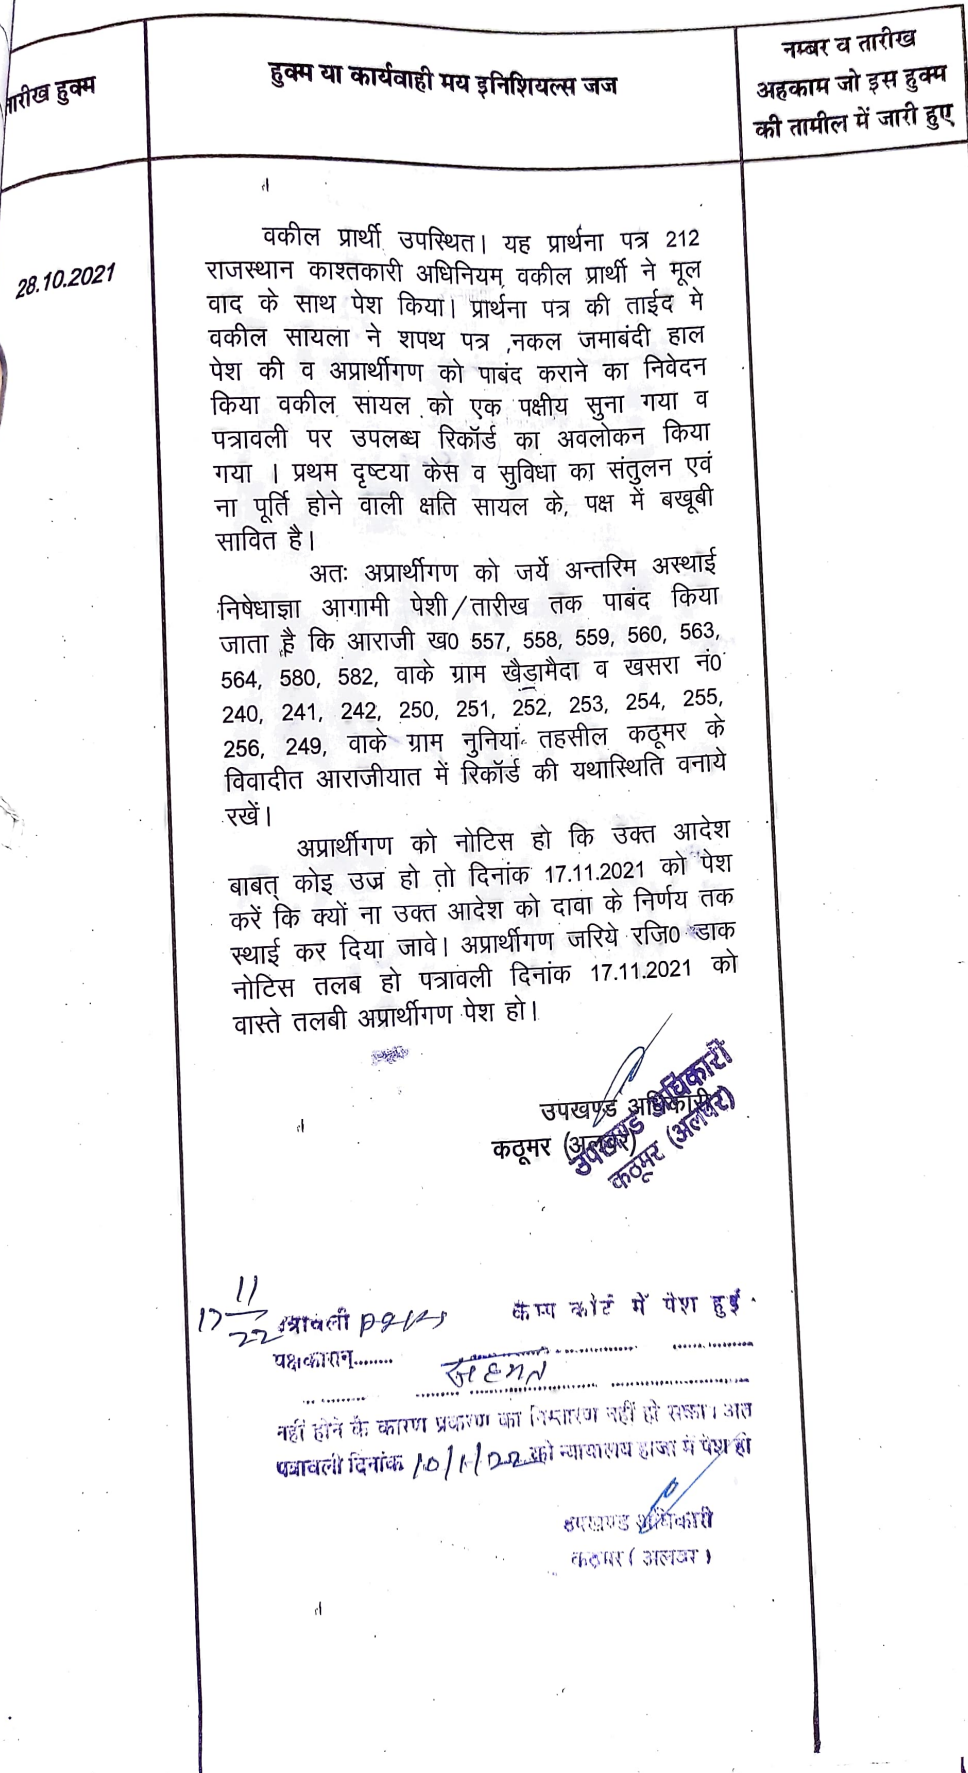 तारीख हुक्म
हुक्म या कार्यवाही मय इनिशियल्स जज
नम्बर व तारीख
अहकाम जो इस हुक्म
की तामील में जारी हुए
28.10.2021
वकील प्रार्थी उपस्थित। यह प्रार्थना पत्र 212
राजस्थान काश्तकारी अधिनियम वकील प्रार्थी ने मूल
वाद के साथ पेश किया। प्रार्थना पत्र की ताईद मे
वकील सायला ने शपथ पत्र ,नकल जमाबंदी हाल
पेश की व अप्रार्थीगण को पाबंद कराने का निवेदन
किया वकील सायल को एक पक्षीय सुना गया व
पत्रावली पर उपलब्ध रिकॉर्ड का अवलोकन किया
गया । प्रथम दृष्टया केस व सुविधा का संतुलन एवं
ना पूर्ति होने वाली क्षति सायल के, पक्ष में बखूबी
सावित है।
अतः अप्रार्थीगण को जर्ये अन्तरिम अस्थाई
निषेधाज्ञा आगामी पेशी/तारीख तक पाबंद किया
जाता है कि आराजी ख0 557, 558, 559, 560, 563,
564, 580, 582, वाके ग्राम खैड़ामैदा व खसरा नं0
240, 241, 242, 250, 251, 252, 253, 254, 255,
256, 249, वाके ग्राम नुनियां तहसील कठूमर के
विवादीत आराजीयात में रिकॉर्ड की यथास्थिति वनाये
रखें।
अप्रार्थीगण को नोटिस हो कि उक्त आदेश
बाबत् कोइ उज्र हो तो दिनांक 17.11.2021 को पेश
करें कि क्यों ना उक्त आदेश को दावा के निर्णय तक
स्थाई कर दिया जावे। अप्रार्थीगण जरिये रजि0 डाक
नोटिस तलब हो पत्रावली दिनांक 17.11.2021 को
वास्ते तलबी अप्रार्थीगण पेश हो।
उपखण्ड अधिकारी
कठूमर (अलवर)
उपखण्ड अधिकारी
कठूमर (अलवर)
17 11 22 पत्रावली कैम्प कोर्ट में पेश हुई
पक्षकारान्........
सहमत
नहीं होने के कारण प्रकरण का निस्तारण नहीं हो सका। अत
पत्रावली दिनांक 10/1/22 को न्यायालय हाजा में पेश हो
उपखण्ड अधिकारी
कठूमर ( अलवर )